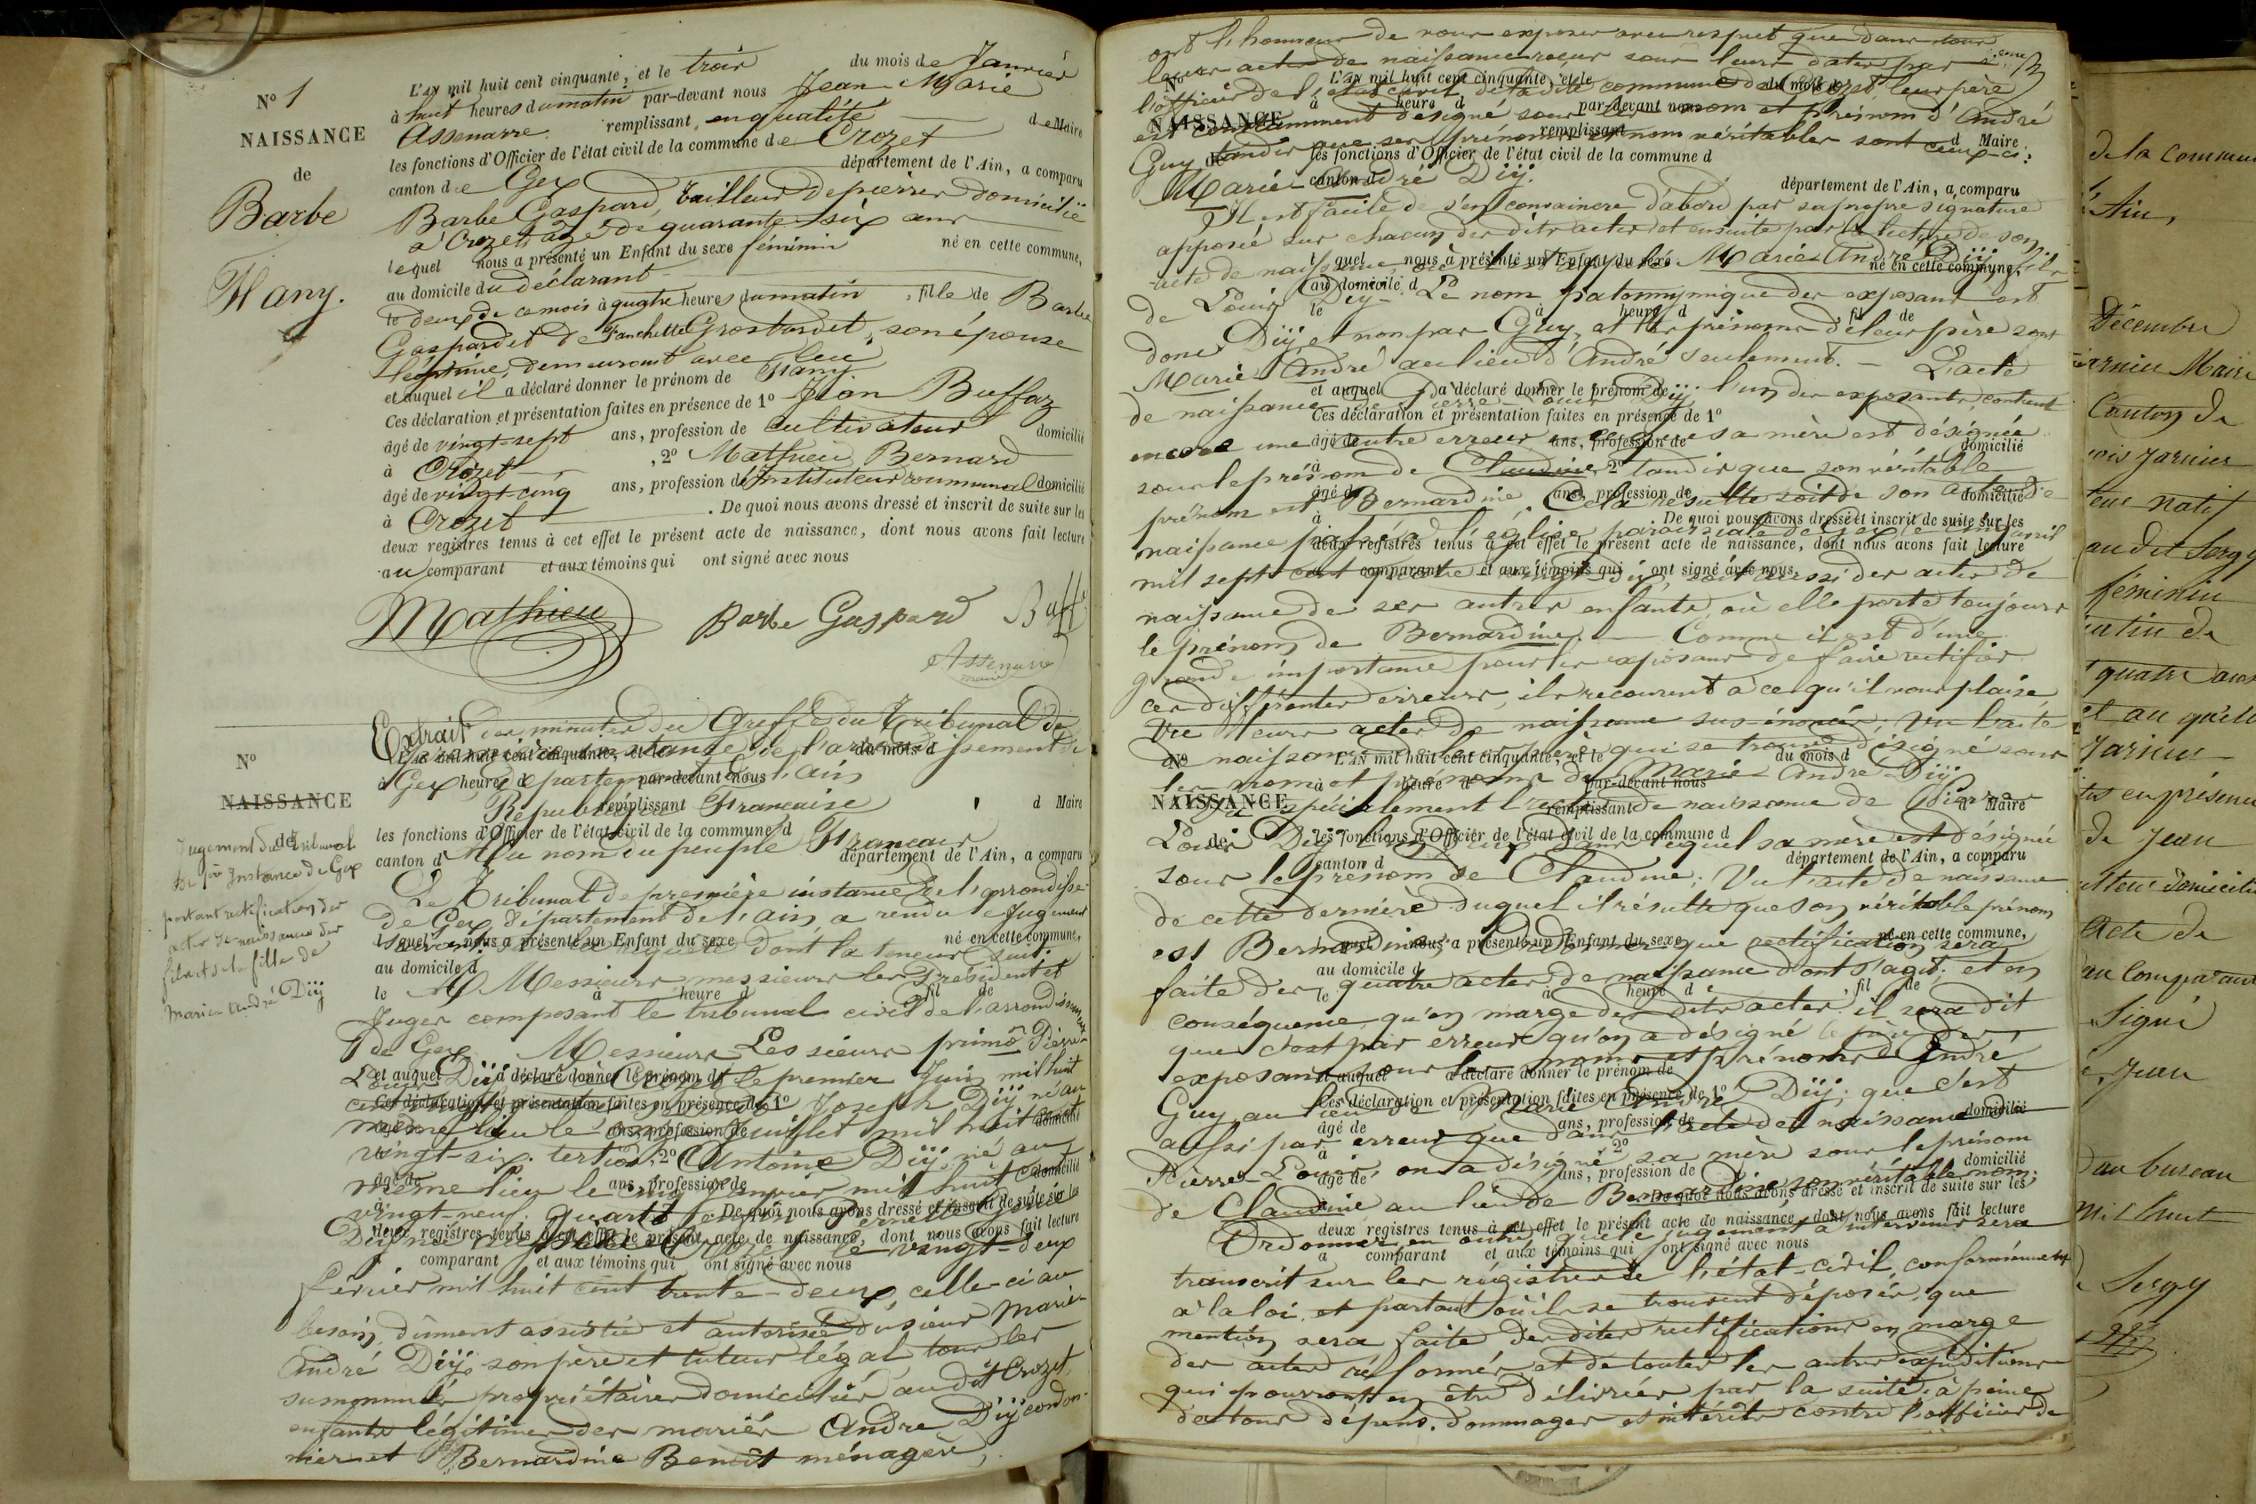 N° 1
NAISSANCE
de
Barbe
Fany.
L'AN mil huit cent cinquante, et le trois du mois de Janvier
à huit heures du matin par-devant nous Jean Marie
Assenarre. remplissant en qualité de Maire
les fonctions d'Officier de l'état civil de la commune de Crozet
canton de Gex département de l'Ain, a comparu
Barbe Gaspard, tailleur de pierres domicilié
à Crozet, âgé de quarante six ans
lequel nous a présenté un Enfant du sexe féminin né en cette commune,
au domicile du déclarant
le deux de ce mois à quatre heures du matin, fille de Barbe
Gaspard et de Fanchette Grosbordet, son épouse
légitime, demeurant avec lui
et auquel il a déclaré donner le prénom de Fany.
Ces déclaration et présentation faites en présence de 1° Jean Buffaz
âgé de vingt-sept ans, profession de cultivateur domicilié
à Crozet, 2° Mathieu Bernard
âgé de vingt-cinq ans, profession d'Instituteur communal domicilié
à Crozet. De quoi nous avons dressé et inscrit de suite sur les
deux registres tenus à cet effet le présent acte de naissance, dont nous avons fait lecture
au comparant et aux témoins qui ont signé avec nous
Mathieu Barbe Gaspard Buff
Assenarre
maire
N°
NAISSANCE
de
Jugement du Tribunal
de 1ère Instance de Gex
portant rectification des
actes de naissance des
fils et de la fille de
Marie André Dij
Extrait des minutes du Greffe du Tribunal de
première instance de l'arrondissement de
Gex, Département de l'ain
République Francaise
Au nom du peuple Francais
Le Tribunal de première instance de l'arrondisse-
de Gex département de l'ain a rendu le Jugement
suivant sur la requête dont la teneur suit.
A Messieurs messieurs les président et
Juges composant le tribunal civil de l'arrondissement
de Gex Messieurs Les sieurs primò Pierre-
Louis Dij, né à Crozet le premier Juin mil huit
cent Joseph Dij né au
même lieu le onze Juillet mil huit cent
vingt-six. tertiò, Antoine Dij, né au
même lieu le cinq Janvier mil huit cent
vingt-neuf. quartò
Dij née le vingt-deux
février mil huit cent trente-deux, celle-ci au
besoin dûment assistée et autorisée du sieur Marie-
André Dij son père et tuteur légal, tous les
susnommés propriétaires domiciliés au dit Crozet,
enfants légitimes des mariés André Dij cordon-
nier et Bernardine Benoît ménagère,
ont l'honneur de vous exposer avec respect que dans tous
leurs actes de naissance reçus sous leurs dates par
l'officier de l'état civil de la dite commune de Crozet leur père
est constamment désigné sous les nom et prénom d'André
Guy tandis que ses prénoms et nom véritables sont ceux-ci:
Marie-André Dij.
Il est facile de s'en convaincre d'abord par sa propre signature
apposée sur chacun des dits actes et ensuite par la lecture de son
acte de naissance, où il est appelé Marie-André Dij, fils
de Louis Dij - Le nom patronymique des exposans est
donc Dij et non pas Guy, et les prénoms de leur père sont
Marie-André au lieu d'André seulement. - L'acte
de naissance de Pierre Louis Dij, l'un des exposants, contient
encore une autre erreur en ce que sa mère est désignée
sous le prénom de Claudine, tandis que son véritable
prénom est Bernardine. Cela résulte soit de son acte de
naissance passé à l'église paroissiale de Gex, le cinq avril
mil sept cent quatre vingt-dix, soit aussi des actes de
naissance de ses autres enfants, où elle porte toujours
le prénom de Bernardine. - Comme il est d'une
grande importance pour les exposans de faire rectifier
ces différentes erreurs, ils recourent à ce qu'il vous plaise,
Vu leurs actes de naissance sus-énoncés; Vu l'acte
de naissance de leur père qui se trouve désigné sous
les noms et prénoms de Marie-André Dij
Vu spécialement l'acte de naissance de Pierre-
Louis Dij dans lequel sa mère est désignée
sous le prénom de Claudine; Vu l'acte de naissance
de cette dernière duquel il résulte que son véritable prénom
est Bernardine; Ordonner que rectification sera
faite des quatre actes de naissance dont s'agit; et en
conséquence, qu'en marge des dits actes il sera dit
que c'est par erreur qu'on a désigné le père des
exposans sous les noms et prénoms d'André
Guy, au lieu de Marie André Dij; que c'est
aussi par erreur que dans l'acte de naissance de
Pierre-Louis, on a désigné sa mère sous le prénom
de Claudine au lieu de Bernardine son véritable nom;
Ordonner en outre que le jugement à intervenir sera
transcrit sur les régistres de l'état-civil, conformément
à la loi, et partout où ils se trouvent déposés, que
mention sera faite des dites rectifications en marge
des actes réformés et de toutes les autres expéditions
qui pourront en être délivrées par la suite, à peine
de tous dépens, dommages et intérêts contre l'officier de
N°
NAISSANCE
de
L'AN mil huit cent cinquante, et le du mois d
à heure d par-devant nous
remplissant d Maire
les fonctions d'Officier de l'état civil de la commune d
canton d département de l'Ain, a comparu
l quel nous a présenté un Enfant du sexe né en cette commune,
au domicile d
le à heure d , fil de
et auquel a déclaré donner le prénom de
Ces déclaration et présentation faites en présence de 1°
âgé de ans, profession de domicilié
à , 2°
âgé de ans, profession de domicilié
à . De quoi nous avons dressé et inscrit de suite sur les
deux registres tenus à cet effet le présent acte de naissance, dont nous avons fait lecture
a comparant et aux témoins qui ont signé avec nous
de la commun
Ain,
Décembre
Maire
Canton de
natif
au dit Sergy
féminin
quatre ans
en présence
de Jean
domicilié
Acte de
au comparant
Signé
Jean
au bureau
mil huit
Sergy